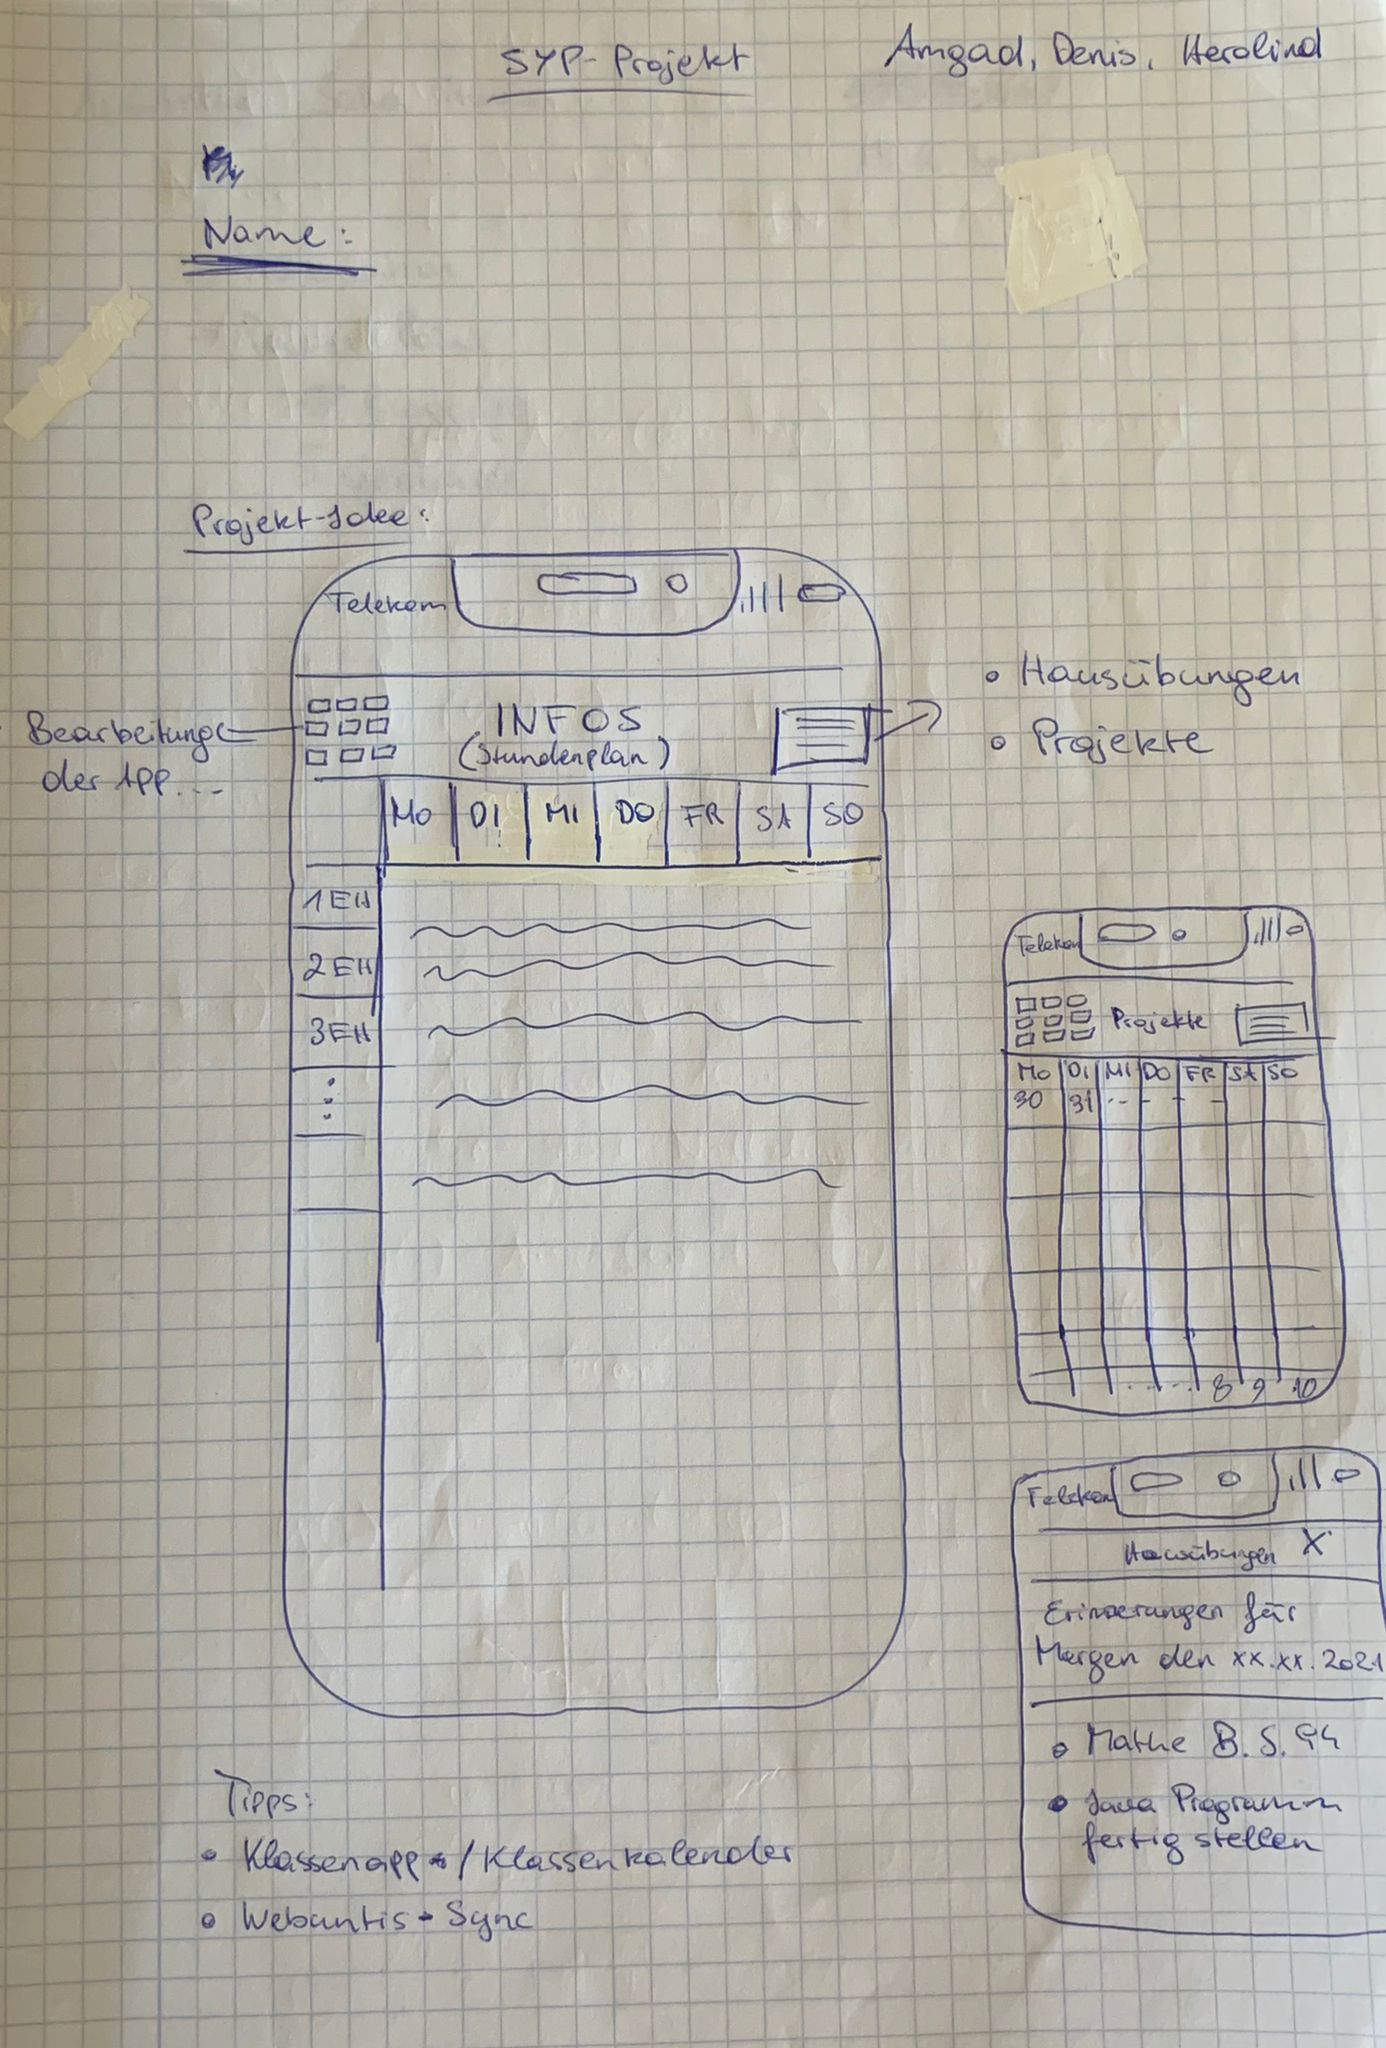 SYP-Projekt
Amgad, Denis, Herolind
Name:
Projekt-Idee:
Telekom
Bearbeitung
der App...
INFOS
(Stundenplan)
• Hausübungen
• Projekte
Mo DI MI DO FR SA SO
1 EH
2 EH
3 EH
Telekom
Projekte
Mo DI MI DO FR SA SO
30 31 -- - - -
..... 8 9 10
Telekom
Hausübungen X
Erinnerungen für
Morgen den xx.xx.2021
• Mathe B. S. 94
• Java Programm
fertig stellen
Tipps:
• Klassenapp / Klassenkalender
• Webuntis - Sync